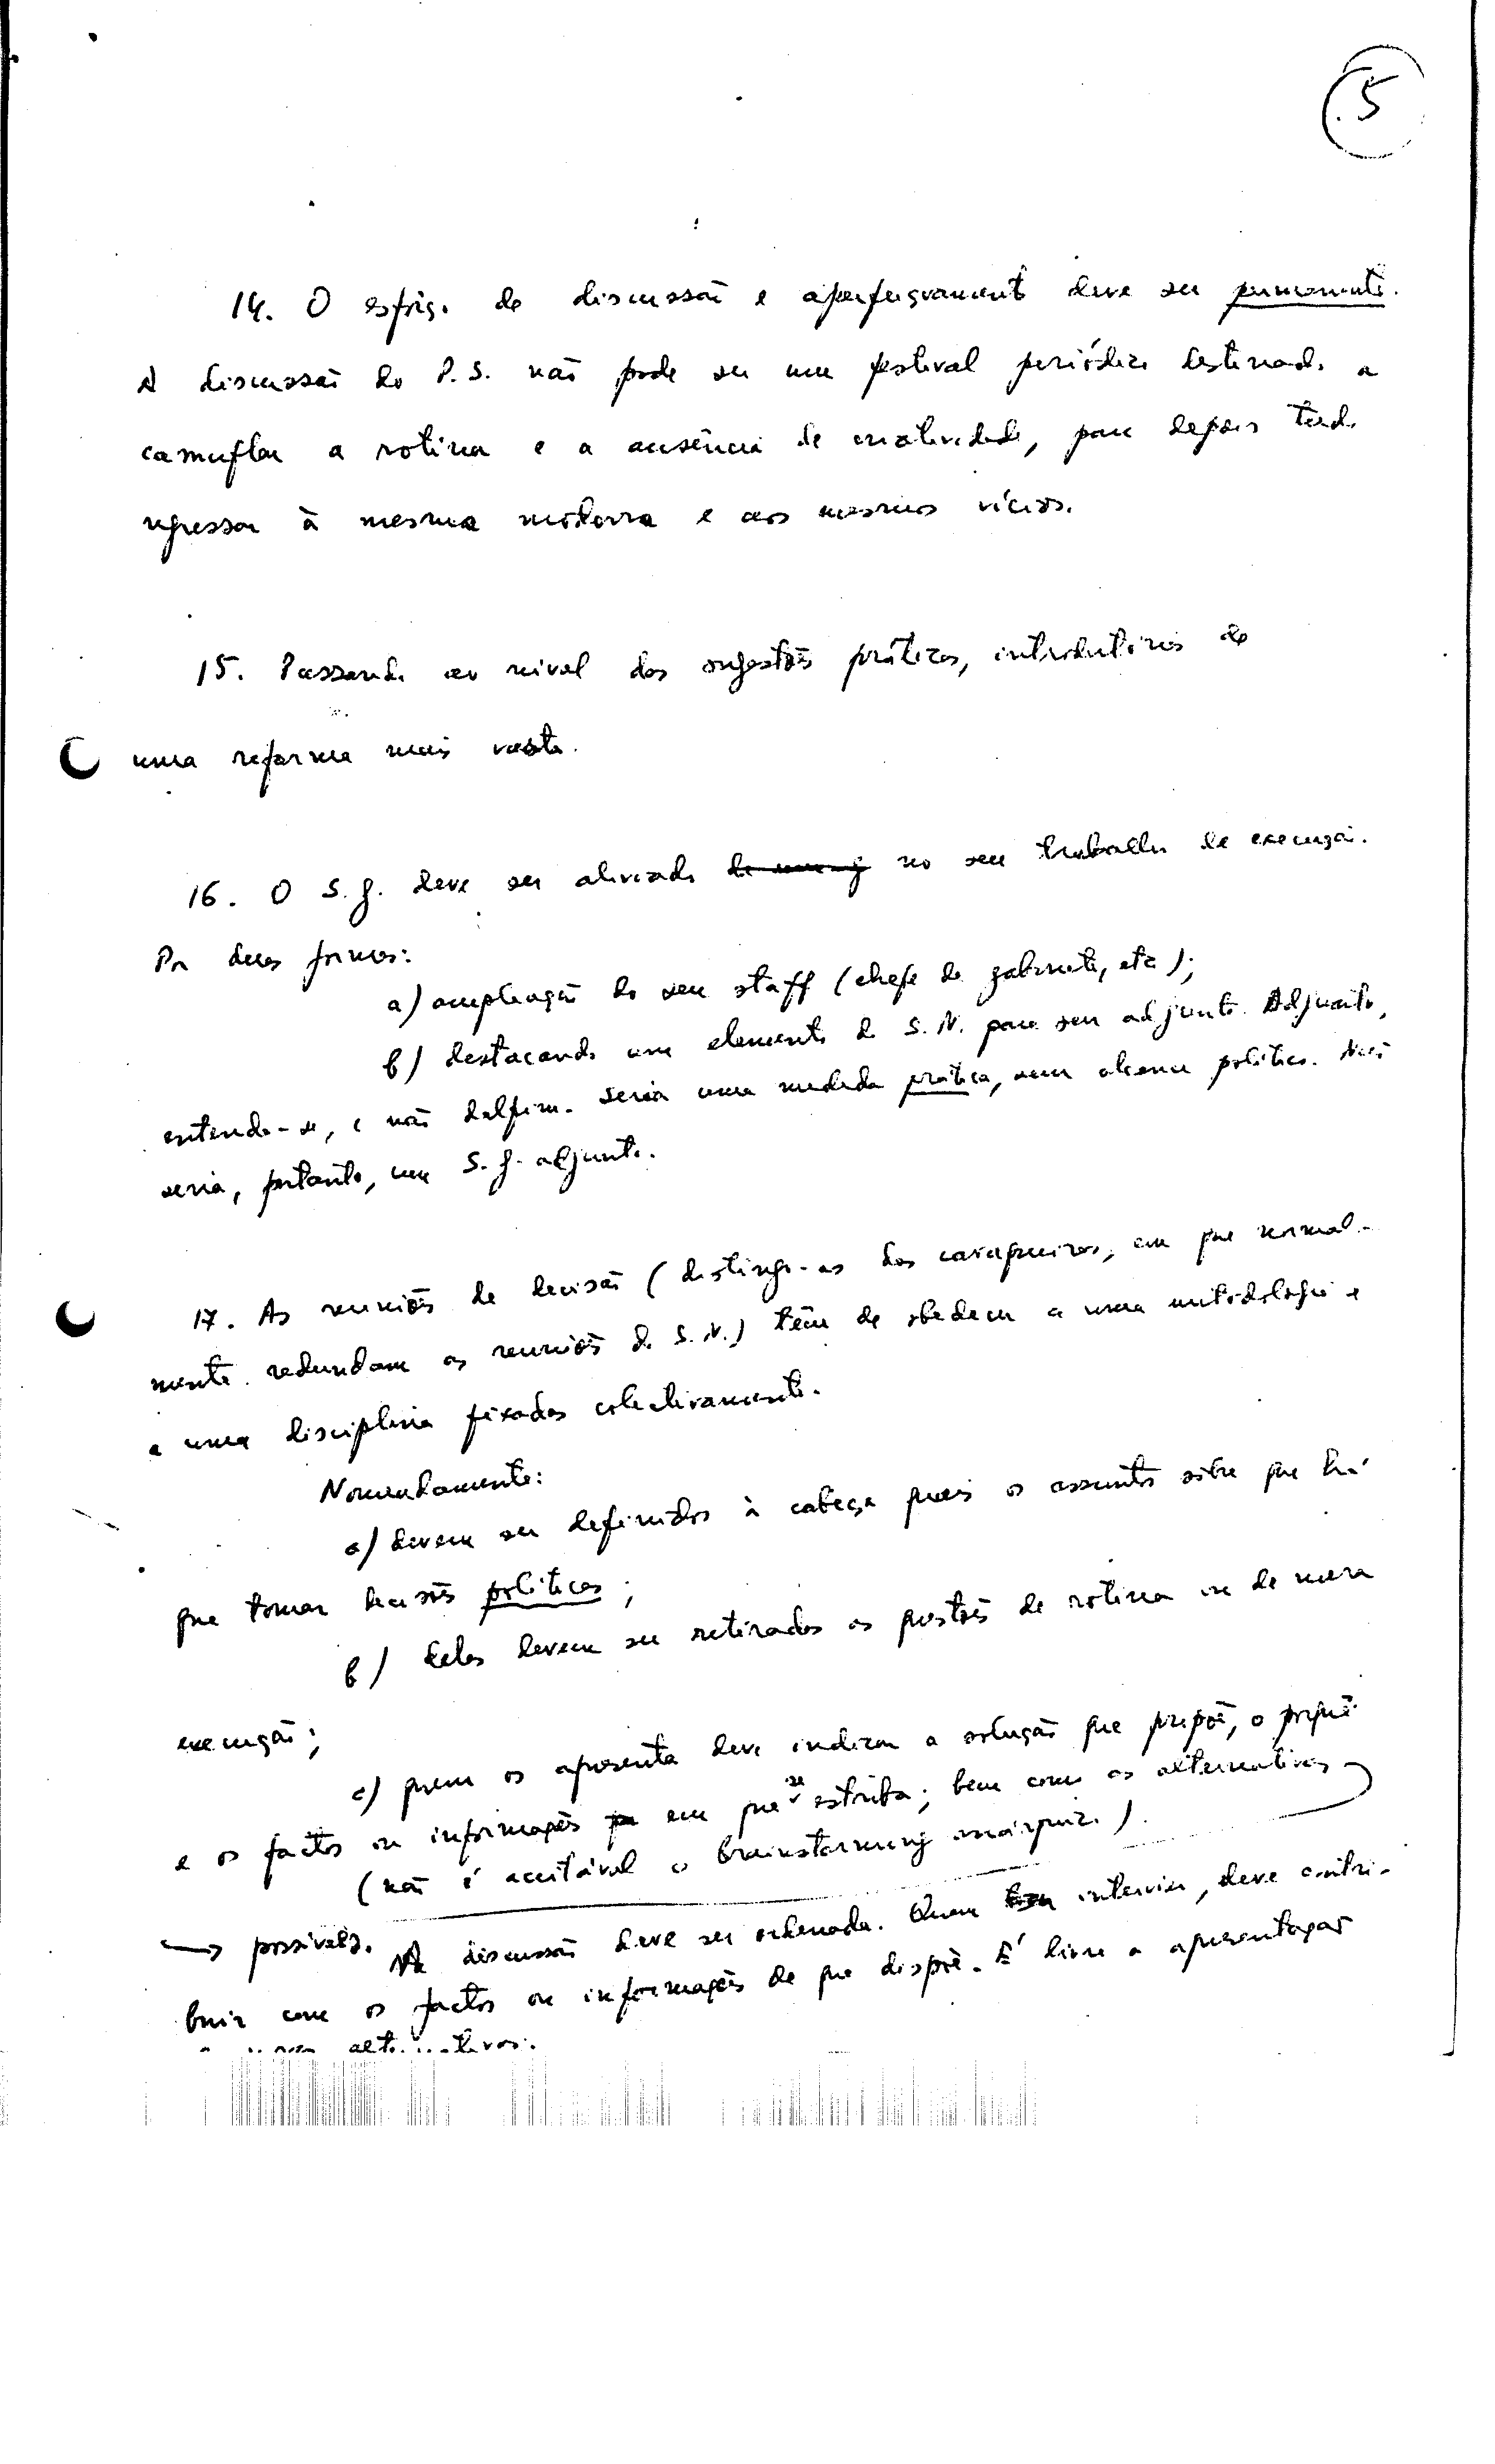 5
14. O esforço de discussão e aperfeiçoamento deve ser permanente.
A discussão do P.S. não pode ser um festival periódico destinado a
camuflar a rotina e a ausência de criatividade, para depois tudo
regressar à mesma modorra e aos mesmos vícios.
15. Passando ao nível das sugestões práticas, introdutórias de
uma reforma mais vasta.
16. O S.G. deve ser aliviado no seu trabalho de execução.
Por duas formas:
a) ampliação do seu staff (chefe de gabinete, etc);
b) destacando um elemento do S.N. para seu adjunto. Adjunto,
entenda-se, e não delfim. Seria uma medida prática, sem alcance político. Não
seria, portanto, um S.G. adjunto.
17. As reuniões de decisão (distingo-as dos cavaqueiros, em que normal-
mente redundam as reuniões do S.N.) têm de obedecer a uma metodologia e
a uma disciplina fixadas colectivamente.
Nomeadamente:
a) devem ser definidos à cabeça quais os assuntos sobre que há
que tomar decisões políticas;
b) deles devem ser retirados as questões de rotina ou de mera
execução;
c) quem os apresenta deve indicar a solução que propõe, o porquê
e os factos ou informações em que se estriba; bem como as alternativas
(não é aceitável o brainstorming anárquico).
possíveis. A discussão deve ser ordenada. Quem intervier, deve contri-
buir com os factos ou informações de que dispõe. É livre a apresentação
alternativas.